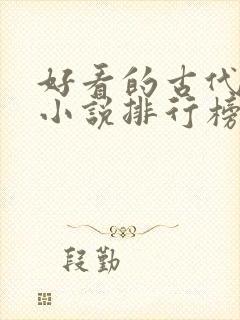 好看的古代
小说排行榜
段勤